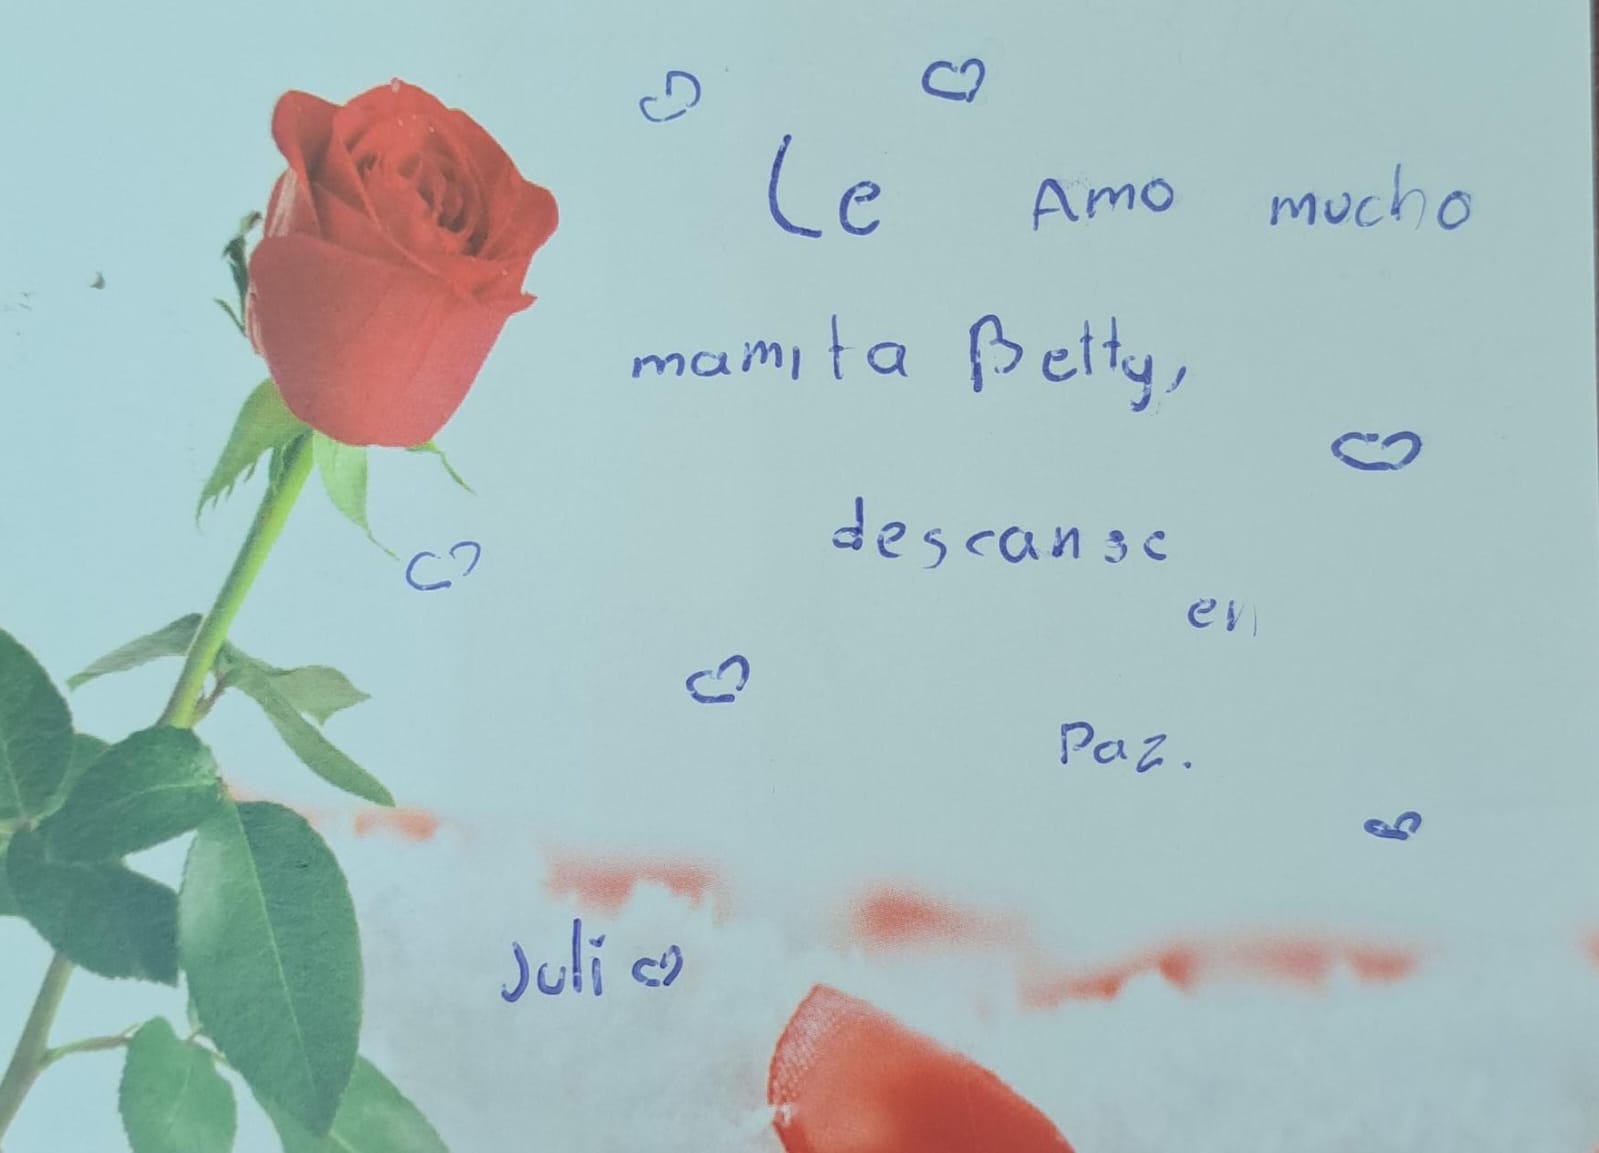 Le Amo mucho
mamita Betty,
descanse
en
Paz.
Juli